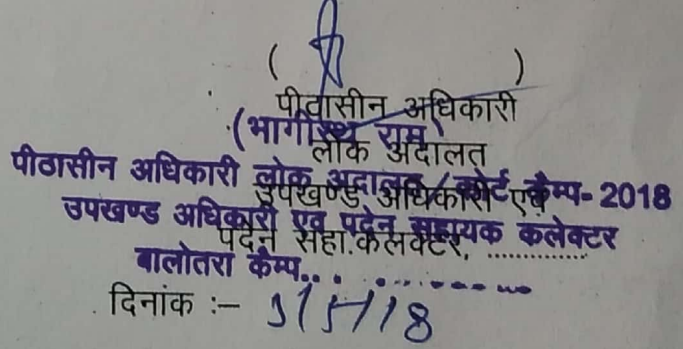 ( )
पीठासीन अधिकारी
(भागीरथ राम)
लोक अदालत
पीठासीन अधिकारी लोक अदालत / कोर्ट कैम्प- 2018
उपखण्ड अधिकारी एवं
उपखण्ड अधिकारी एवं पदेन सहायक कलेक्टर
पदेन सहा.कलक्टर, ..............
बालोतरा कैम्प..
दिनांक :-